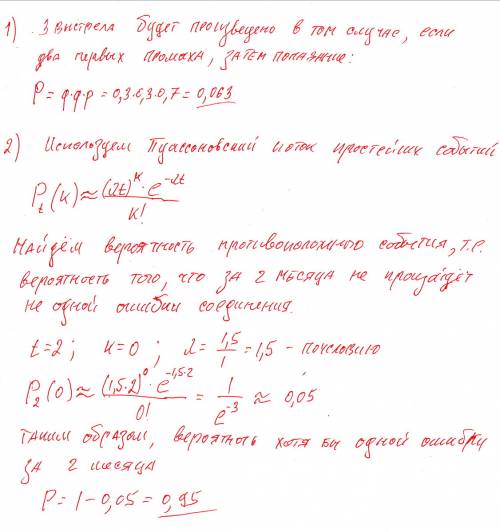 1) 3 выстрела будет произведено в том случае, если
два первых промаха, ЗАТЕМ попадание:
P = q·q·p = 0,3·0,3·0,7 = 0,063
2) Используем Пуассоновский поток простейших событий
P_t(k) ≈ (λt)^k · e^(-λt) / k!
Найдём вероятность противоположного события, т.е.
вероятность того, что за 2 месяца не произойдёт
не одной ошибки соединения.
t=2 ; k=0 ; λ = 1,5/1 = 1,5 – по условию
P_2(0) ≈ (1,5·2)^0 · e^(-1,5·2) / 0! = 1/e^(-3) ≈ 0,05
Таким образом, вероятность хотя бы одной ошибки
за 2 месяца
P = 1 – 0,05 = 0,95